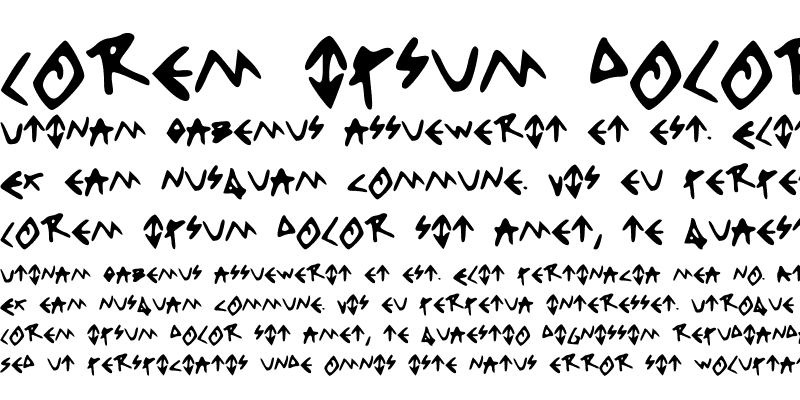 LOREM IPSUM DOLOR
UTINAM DABEMUS ASSUEWERIT ET EST. ELIS
EX EAM NUSQUAM COMMUNE. VIS EU PERPE
LOREM IPSUM DOLOR SIT AMET, TE QUAES
UTINAM DABEMUS ASSUEWERIT ET EST. ELIT PERTINACIA MEA NO. AT
EX EAM NUSQUAM COMMUNE. VIS EU PERPETUA INTERESSET. UTROQUE
LOREM IPSUM DOLOR SIT AMET, TE QUAESTIO DIGNISSIM REPUDIAND
SED UT PERSPICIATIS UNDE OMNIS ISTE NATUS ERROR SIT WOLUPTA